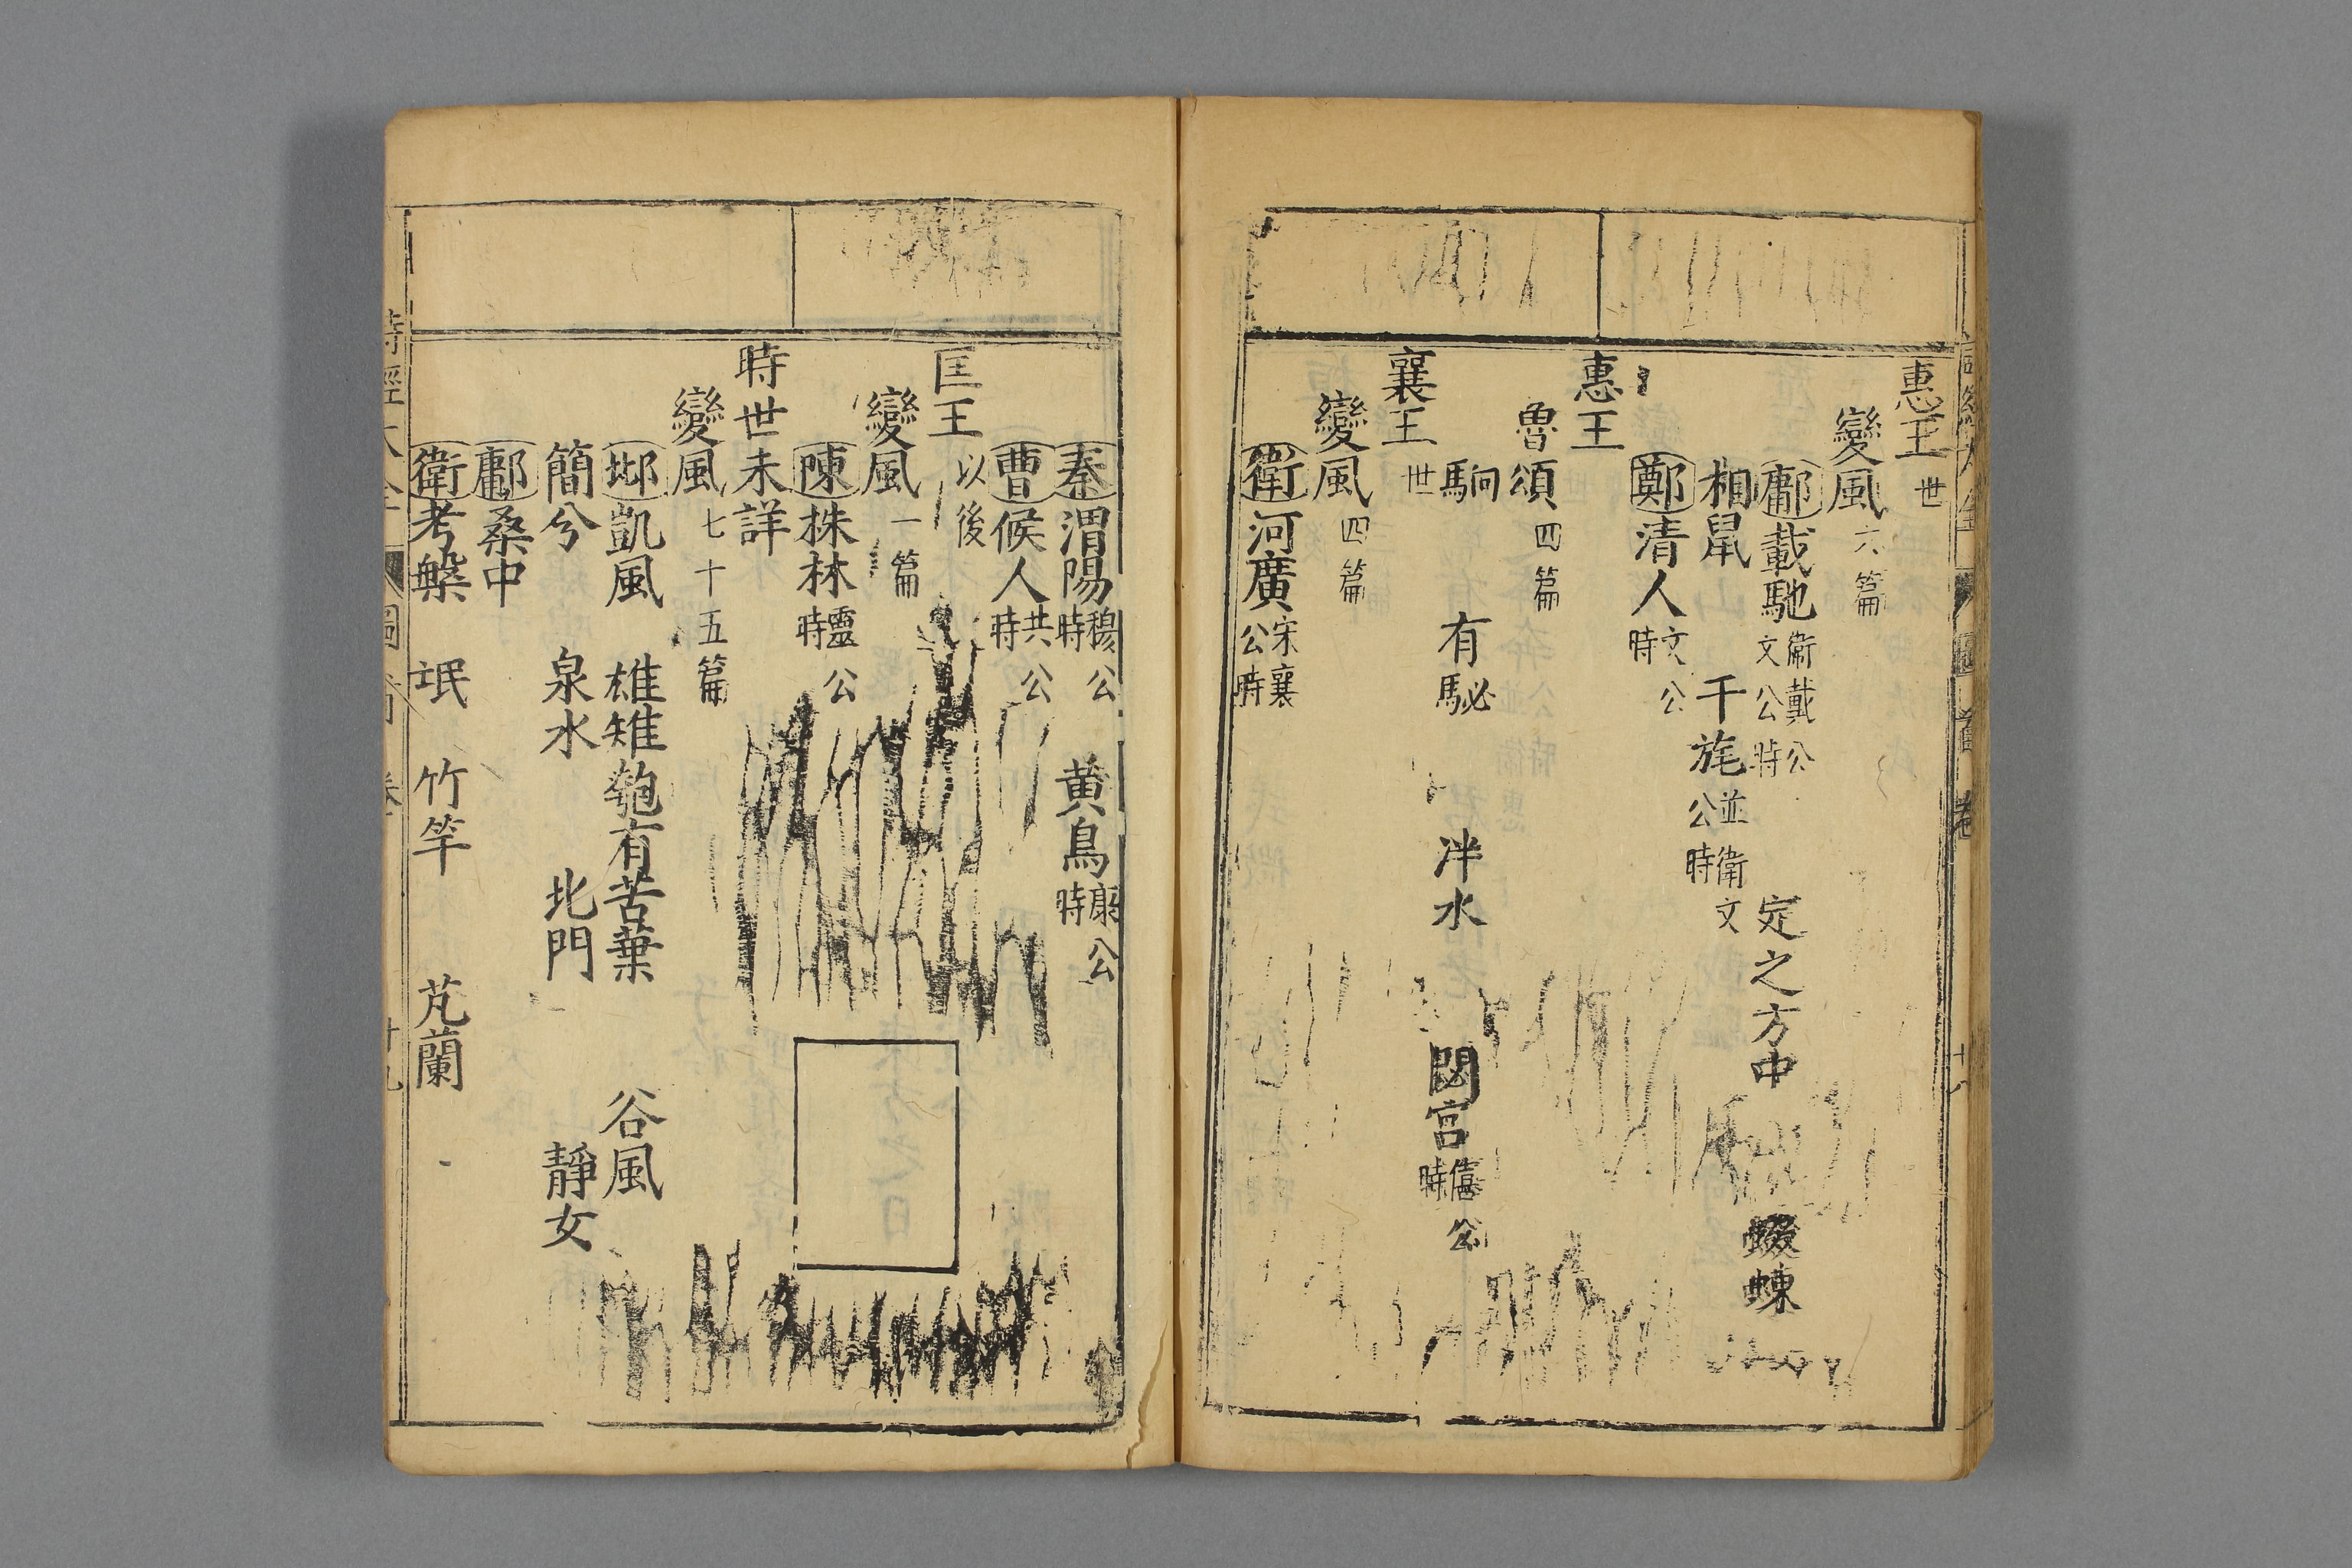 惠王世
變風六篇
鄘載馳衛戴公文公時 定之方中 蝃蝀
相鼠 干旄並衛文公時
鄭清人文公時
惠王
魯頌四篇
駉 有駜 泮水 閟宮僖公時
襄王世
變風四篇
衛河廣宋襄公時
秦渭陽穆公時 黄鳥康公時
曹候人共公時
匡王以後
變風一篇
陳株林靈公時
時世未詳
變風七十五篇
邶凱風 雄雉 匏有苦葉 谷風
簡兮 泉水 北門 靜女
鄘桑中
衛考槃 氓 竹竿 芄蘭